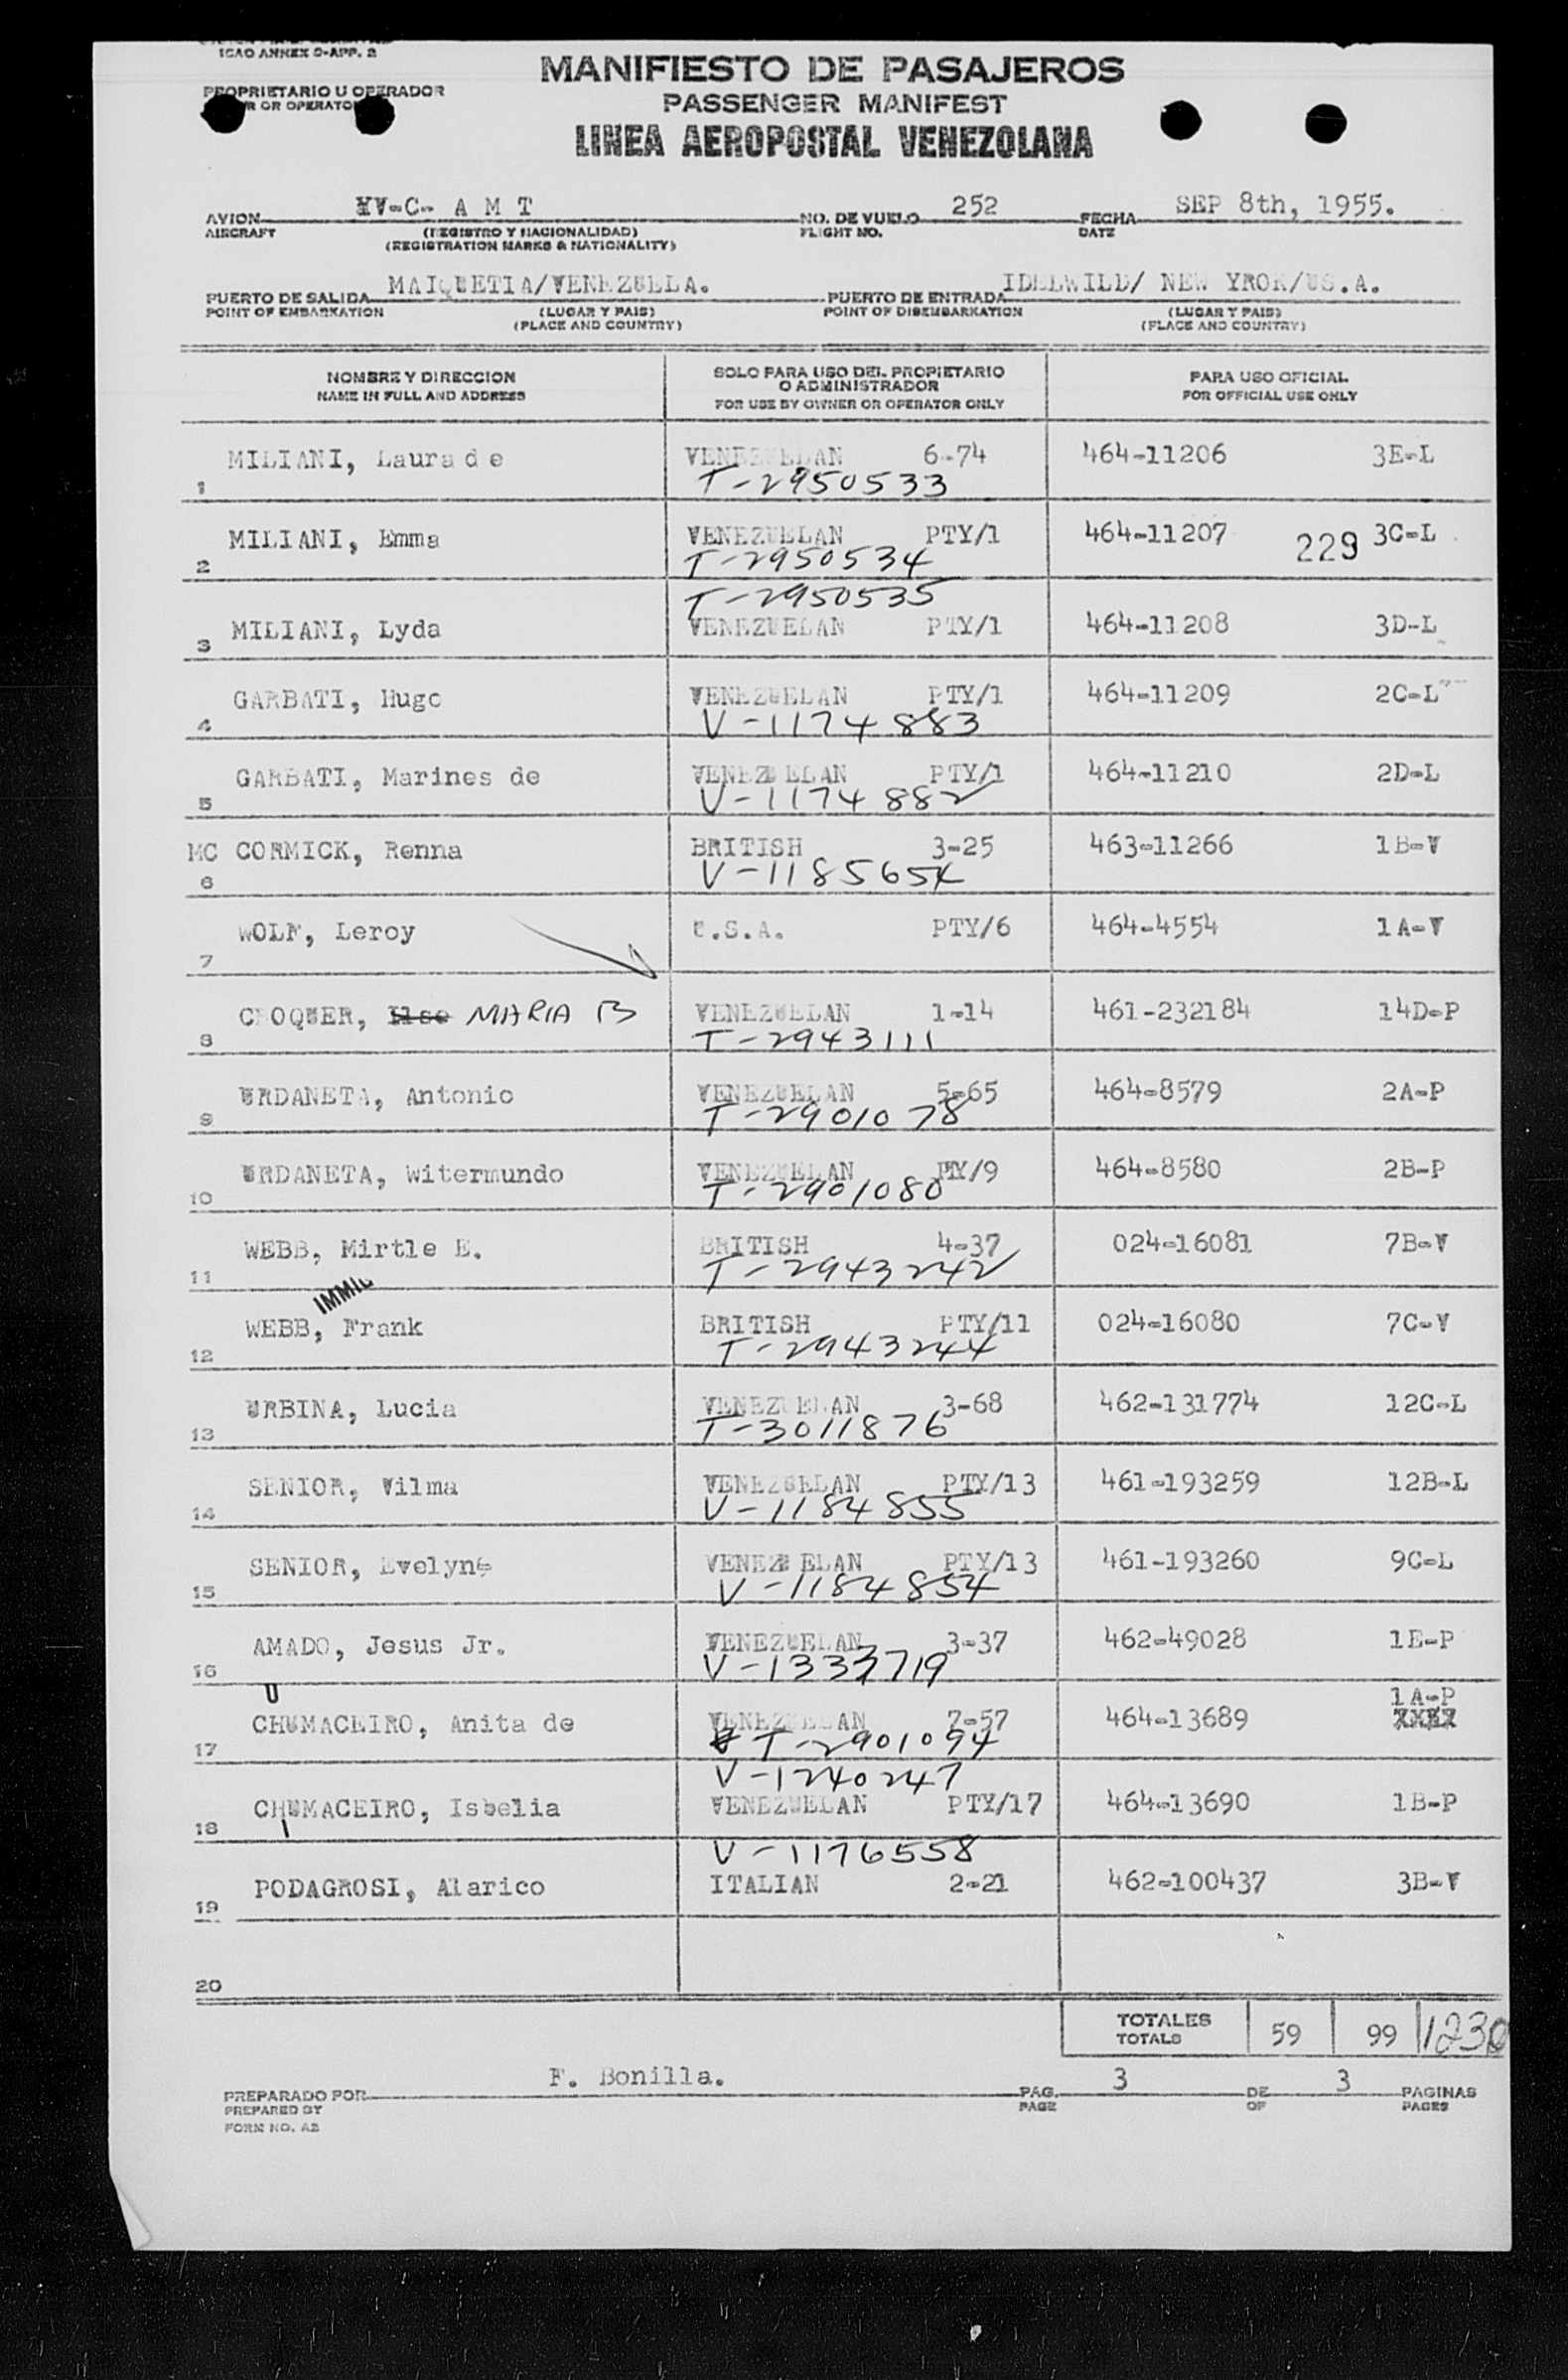 ICAO ANNEX 9-APP. 2
PROPRIETARIO U OPERADOR
OR OPERATOR
MANIFIESTO DE PASAJEROS
PASSENGER MANIFEST
LINEA AEROPOSTAL VENEZOLANA
AVION YV-C- A M T NO. DE VUELO 252 FECHA SEP 8th, 1955.
AIRCRAFT (REGISTRO Y NACIONALIDAD) FLIGHT NO. DATE
(REGISTRATION MARKS & NATIONALITY)
PUERTO DE SALIDA MAIQUETIA/VENEZUELA. PUERTO DE ENTRADA IDELWILD/ NEW YROK/US.A.
POINT OF EMBARKATION (LUGAR Y PAIS) POINT OF DISEMBARKATION (LUGAR Y PAIS)
(PLACE AND COUNTRY) (PLACE AND COUNTRY)
NOMBRE Y DIRECCION SOLO PARA USO DEL PROPIETARIO O ADMINISTRADOR PARA USO OFICIAL
NAME IN FULL AND ADDRESS FOR USE BY OWNER OR OPERATOR ONLY FOR OFFICIAL USE ONLY
1 MILIANI, Laura de VENEZUELAN 6-74 464-11206 3E-L
T-2950533
2 MILIANI, Emma VENEZUELAN PTY/1 464-11207 229 3C-L
T-2950534
T-2950535
3 MILIANI, Lyda VENEZUELAN PTY/1 464-11208 3D-L
4 GARBATI, Hugo VENEZUELAN PTY/1 464-11209 2C-L
V-1174883
5 GARBATI, Marines de VENEZUELAN PTY/1 464-11210 2D-L
V-1174882
6 MC CORMICK, Renna BRITISH 3-25 463-11266 1B-V
V-1185654
7 WOLF, Leroy U.S.A. PTY/6 464-4554 1A-V
8 CROQUER, Ilse MARIA B VENEZUELAN 1-14 461-232184 14D-P
T-2943111
9 URDANETA, Antonio VENEZUELAN 5-65 464-8579 2A-P
T-2901078
10 URDANETA, Witermundo VENEZUELAN PTY/9 464-8580 2B-P
T-2901080
11 WEBB, Mirtle E. BRITISH 4-37 024-16081 7B-V
T-2943242
IMMIG
12 WEBB, Frank BRITISH PTY/11 024-16080 7C-V
T-2943244
13 URBINA, Lucia VENEZUELAN 3-68 462-131774 12C-L
T-3011876
14 SENIOR, Vilma VENEZUELAN PTY/13 461-193259 12B-L
V-1184855
15 SENIOR, Evelyne VENEZUELAN PTY/13 461-193260 9C-L
V-1184854
16 AMADO, Jesus Jr. VENEZUELAN 3-37 462-49028 1E-P
V-1333719
U 1A-P
17 CHUMACEIRO, Anita de VENEZUELAN 7-57 464-13689 XXXX
T-2901094
V-1240247
18 CHUMACEIRO, Isbelia VENEZUELAN PTY/17 464-13690 1B-P
V-1176558
19 PODAGROSI, Alarico ITALIAN 2-21 462-100437 3B-V
20
TOTALES 59 99 1230
TOTALS
PREPARADO POR F. Bonilla. PAG. 3 DE 3 PAGINAS
PREPARED BY PAGE OF PAGES
FORM NO. A2